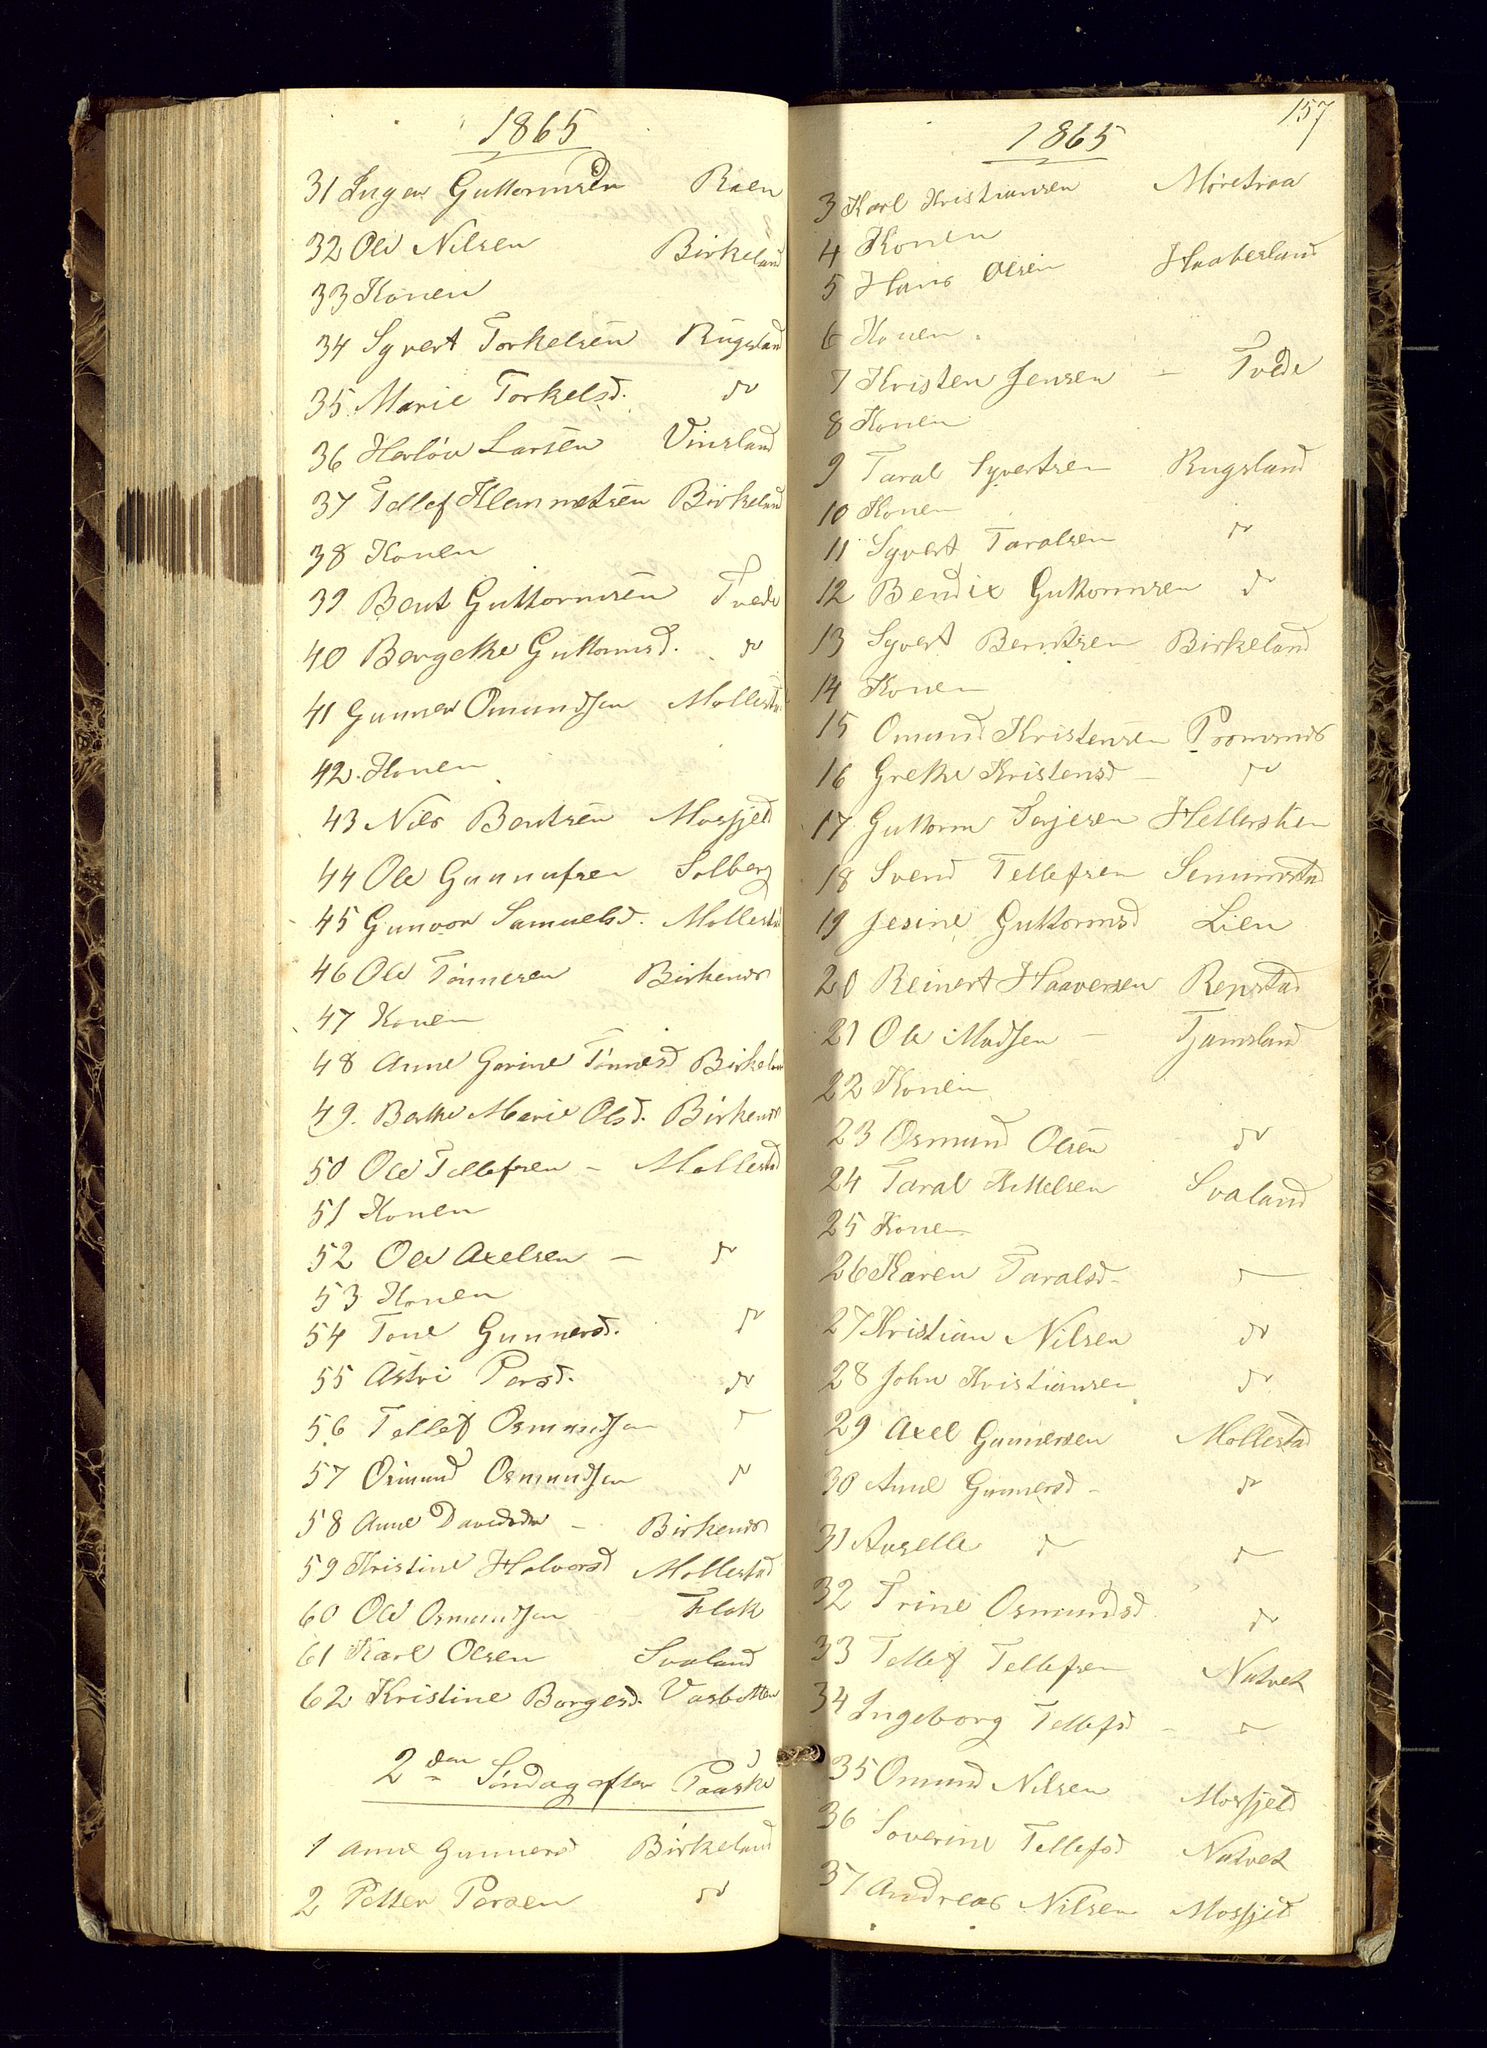 1865
31 Inger Guttormsd Roen
32 Ole Nilsen Birkeland
33 Konen
34 Syvert Torkelsen Rugsland
35 Marie Torkelsd. do
36 Herlov Larsen Vinsland
37 Tellef Klemmetsen Birkeland
38 Konen
39 Bent Guttormsen Tvede
40 Bergethe Guttormsd. do
41 Gunner Omundsen Mollestad
42. Konen
43 Nils Bentsen Mosfjeld
44 Ole Gunnufsen Solberg
45 Gunvor Samuelsd. Mollestad
46 Ole Tønnesen Birkenes
47 Konen
48 Anne Gorine Tønnesd Birkeland
49. Berthe Marie Olsd. Birkenes
50 Ole Tellefsen - Mollestad
51 Konen
52 Ole Axelsen - do
53 Konen
54 Tone Gunnersd. do
55 Astri Persd. do
56 Tellef Osmundsen do
57 Osmund Osmundsen do
58 Anne Davidsdr - Birkenes
59 Kristine Halvorsd Mollestad
60 Ole Osmundsen - Flak
61 Karl Olsen Svaland
62 Kristine Borgesd. Vasbotten
2den Søndag efter Paaske
1 Anne Gunnersd Birkeland
2 Petter Persen do
157
1865
3 Karl Kristiansen Møretraa
4 Konen
5 Hans Olsen Haabesland
6 Konen.
7 Kristen Jensen - Tvede
8 Konen
9 Taral Syvertsen Rugsland
10 Konen
11 Syvert Taralsen do
12 Bendix Guttormsen do
13 Syvert Berntsen Birkeland
14 Konen
15 Omund Kristensen
16 Grethe Kristensd - do
17 Guttorm Terjesen
18 Svend Tellefsen
19 Jesine Guttormsd Lien
20 Reinert Haaversen Repstad
21 Ole Madsen - Tjamsland
22 Konen
23 Osmund Olsen do
24 Taral Kittelsen Svaland
25 Konen
26 Karen Taralsd - do
27 Kristian Nilsen do
28 John Kristiansen do
29 Axel Gunnersen Mollestad
30 Anne Gunnersd - do
31 Aaselle do do
32 Trine Osmundsd do
33 Tellef Tellefsen Natvet
34 Ingeborg Tellefsd - do
35 Omund Nilsen Mosfjeld
36 Soverine Tellefsd Natvet
37 Andreas Nilsen Mosfjeld